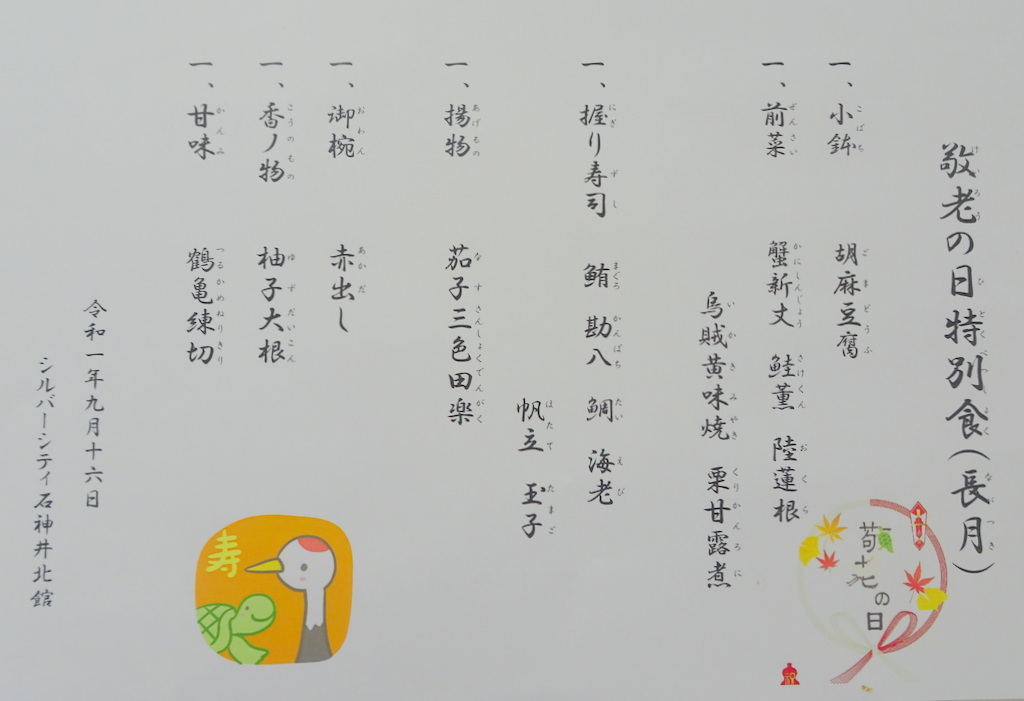 敬老の日特別食(長月)
一、小鉢 胡麻豆腐
一、前菜 蟹新丈 鮭薫 陸蓮根
烏賊黄味焼 栗甘露煮
一、握り寿司 鮪 勘八 鯛 海老
帆立 玉子
一、揚物 茄子三色田楽
一、御椀 赤出し
一、香ノ物 柚子大根
一、甘味 鶴亀練切
令和一年九月十六日
シルバーシティ石神井北館
敬老の日
寿
祝